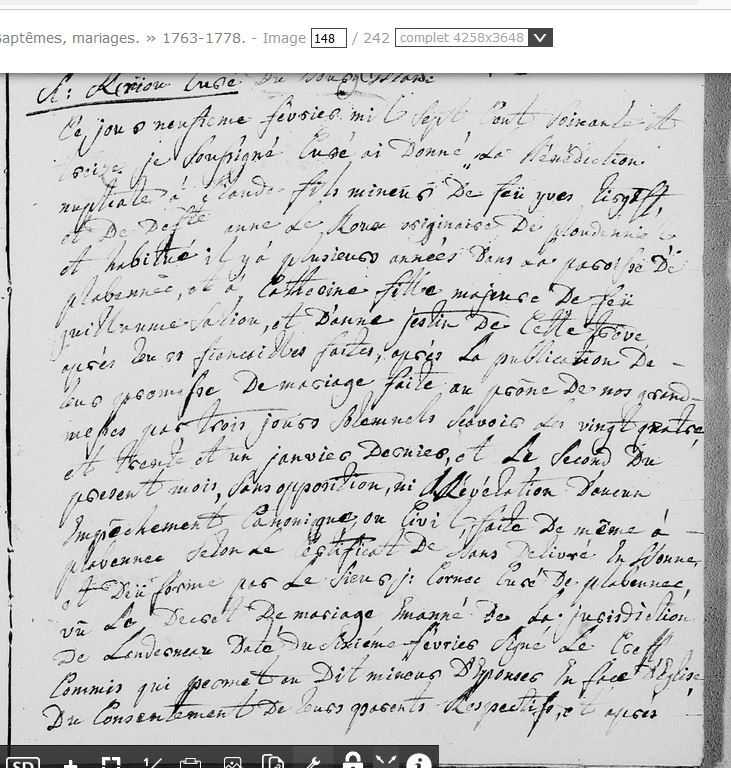 aptêmes, mariages. » 1763-1778. - Image 148 / 242 complet 4258x3648
Curé Du Bourg Blanc
Ce jour neufieme fevrier mil Sept Cent Soixante et
treize je Soussigné Curé ai Donné La Bénédiction
nuptiale a Claude fils mineur De feu yves
et De Defte anne Le Roux originaire De ploudennie
et habitué il y a plusieurs années Dans La paroisse De
plabennec, et a Catherine fille majeure De feu
guillaume Saliou, et D'anne jestin De Cette trève
après leurs fiancailles faites, après La publication De
leur promesse De mariage faite au prône De nos grand
messes par trois jours Solemnels scavoir Les vingt quatre
et trente et un janvier Dernier, et Le Second Du
present mois, Sans opposition, ni Révélation D'aucun
Empêchement Canonique, ou Civil, faite De même à
plabennec Selon Le Certificat De Bans Delivré En bonne
et Düe forme par Le Sieur j: Cornec Curé De plabennec
vû Le Decret De mariage Emanné De La jurisdiction
De Landerneau Daté Du Sixieme fevrier Signé Le
Commis qui permet au Dit mineur D'Epouser En face D'Eglise
Du Consentement De leurs parents Respectifs, et après
SD 1/